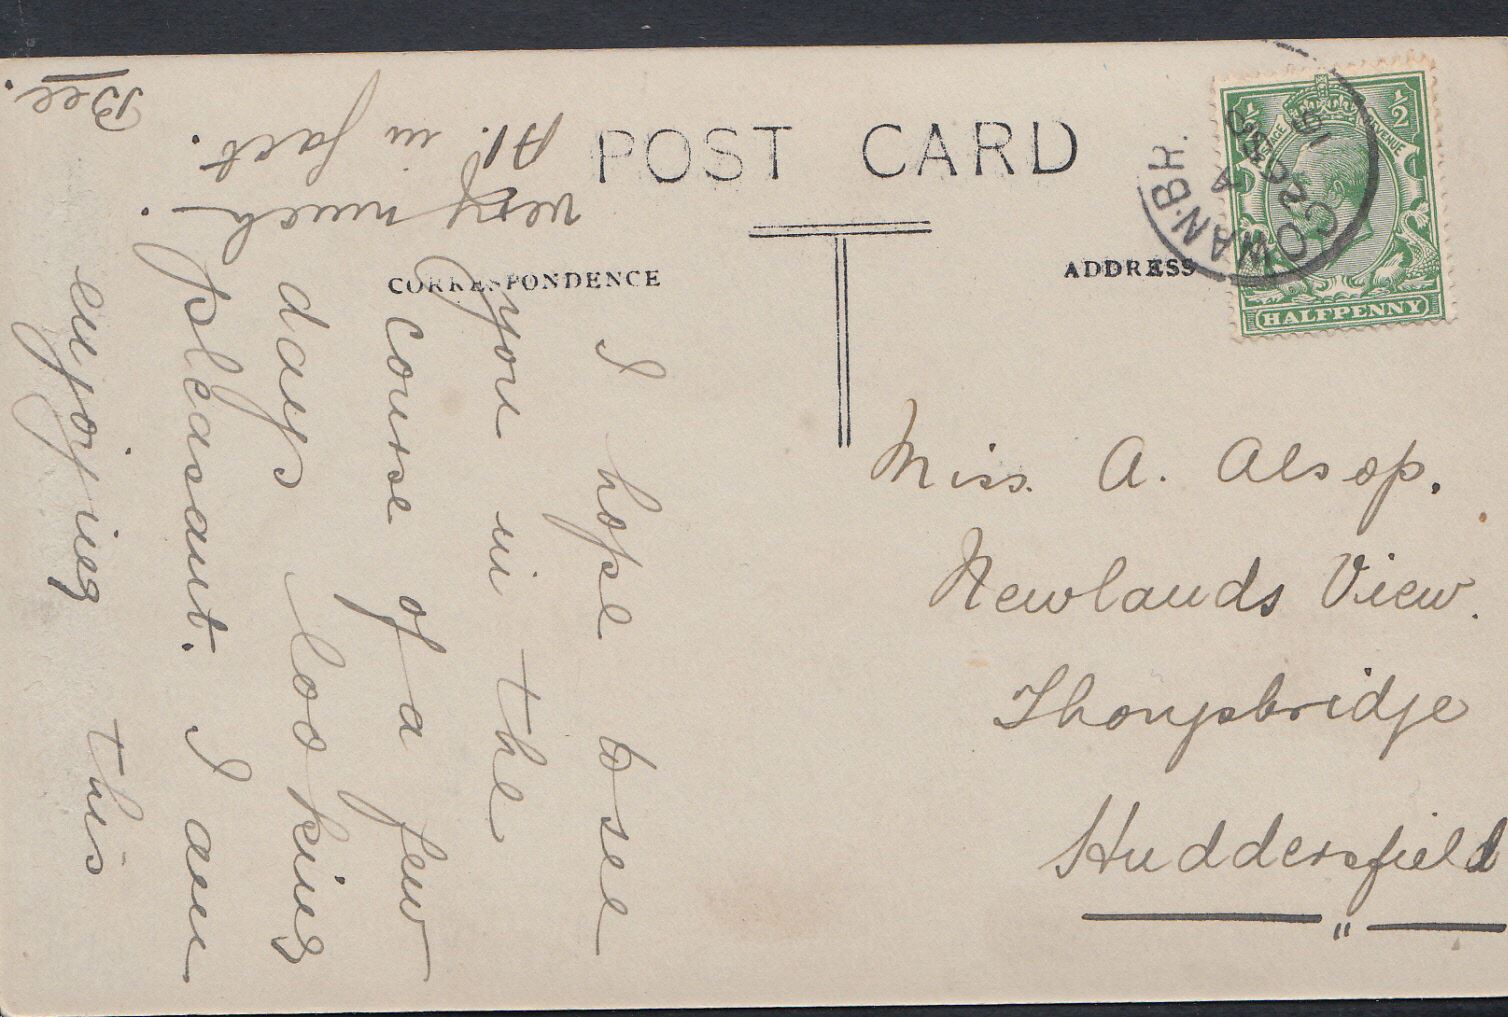 POST CARD
CORRESPONDENCE
ADDRESS
½ ½
POSTAGE REVENUE
HALFPENNY
COWAN·BH.
Miss. A. Alsop.
Newlands View.
Thongsbridge
Huddersfield
"
I hope to see
you in the
course of a few
days looking
pleasant. I am
enjoying this
very much.
A1. in fact.
Bee.